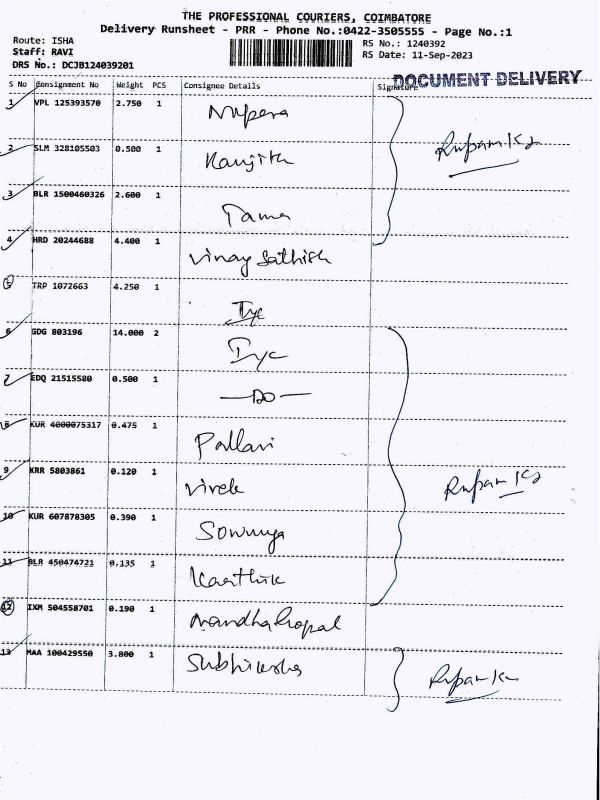 THE PROFESSIONAL COURIERS, COIMBATORE
Delivery Runsheet - PRR - Phone No.:0422-3505555 - Page No.:1
Route: ISHA
Staff: RAVI
DRS No.: DCJB124039201
RS No.: 1240392
RS Date: 11-Sep-2023
DOCUMENT DELIVERY
S No Consignment No Weight PCS Consignee Details Signature
1 VPL 125393570 2.750 1
2 SLM 328105503 0.500 1 Ranjith
3 BLR 1500460326 2.600 1
4 HRD 20244688 4.400 1 Vinay Sathish
5 TRP 1072663 4.250 1 Iyc
6 GDG 803196 14.000 2 Iyc
7 EDQ 21515580 0.500 1 —DO—
8 KUR 4000075317 0.475 1 Pallavi
9 KRR 5803861 0.120 1 Vivek
10 KUR 607878305 0.390 1 Sowmya
11 BLR 450474721 0.135 1 Karthik
12 IXM 504558701 0.190 1 Nandhagopal
13 MAA 100429550 3.800 1 Subhiksha